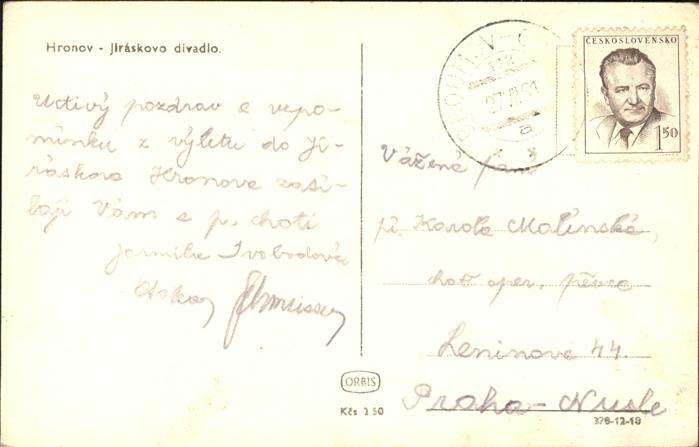 Hronov - Jiráskovo divadlo.
Uctivý pozdrav a vzpo-
mínku z výletu do Ji-
ráskova Hronova zasí-
lají Vám a p. choti
Jarmila Svobodová
ČESKOSLOVENSKO
1 50
Vážená paní
pí. Karola Malínská,
choť oper. pěvce
Leninova 44.
Praha-Nusle
ORBIS
Kčs 2 50
376-12-18